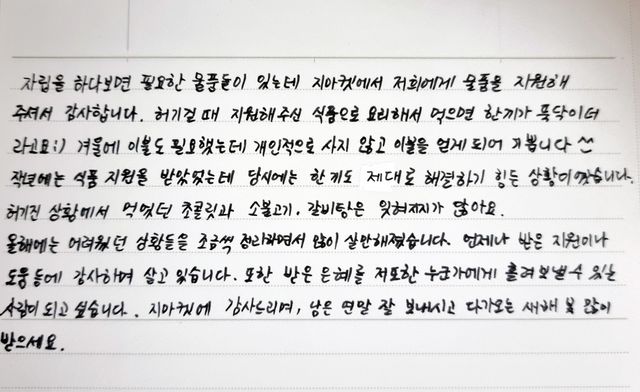 자립을 하다보면 필요한 물품들이 있는데 지마켓에서 저희에게 물품을 지원해
주셔서 감사합니다. 허기질 때 지원해주신 식품으로 요리해서 먹으면 한끼가 뚝딱이더
라고요:) 겨울에 이불도 필요했는데 개인적으로 사지 않고 이불을 얻게 되어 기쁩니다 ^^
작년에는 식품 지원을 받았었는데 당시에는 한 끼도 제대로 해결하기 힘든 상황이였습니다.
허기진 상황에서 먹었던 초콜릿과 소불고기, 갈비탕은 잊혀지지가 않아요.
올해에는 어려웠던 상황들을 조금씩 정리하면서 많이 실안해졌습니다. 언제나 받은 지원이나
도움들에 감사하며 살고 있습니다. 또한 받은 은혜를 저 또한 누군가에게 흘려보낼 수 있는
사람이 되고 싶습니다. 지마켓에 감사드리며, 남은 연말 잘 보내시고 다가오는 새해 복 많이
받으세요.